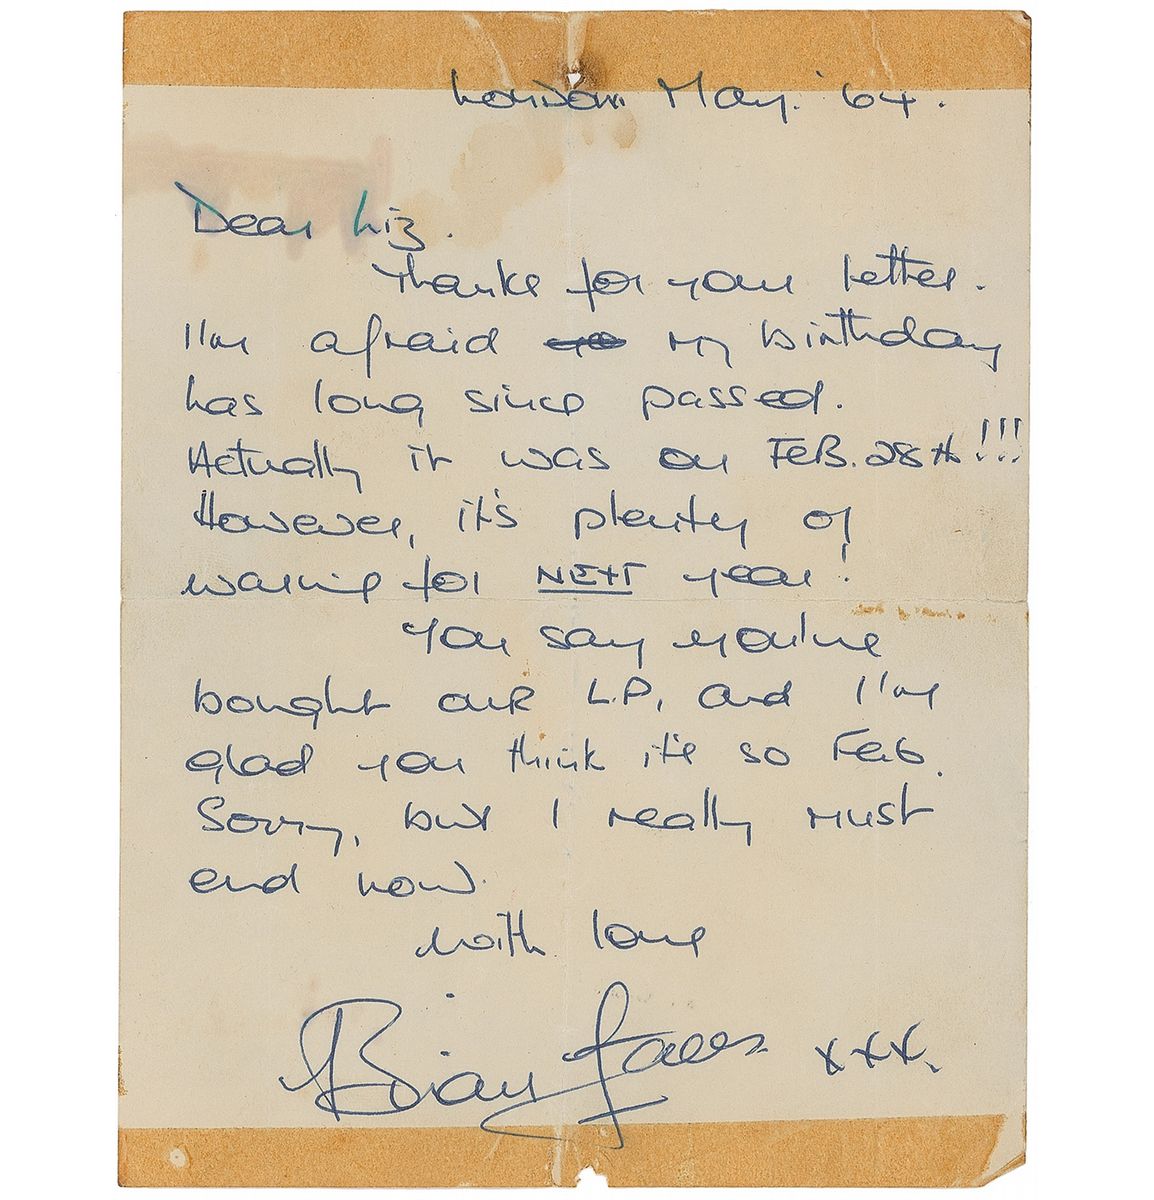 London May. '64.
Dear Liz.
Thanks for your letter.
I'm afraid my Birthday
has long since passed.
Actually it was on FeB. 28th!!!
However, it's plenty of
warning for NEXT year!
You say you've
bought our L.P, and I'm
glad you think it's so Fab.
Sorry, but I really must
end now.
with love
Brian Jones xxx.